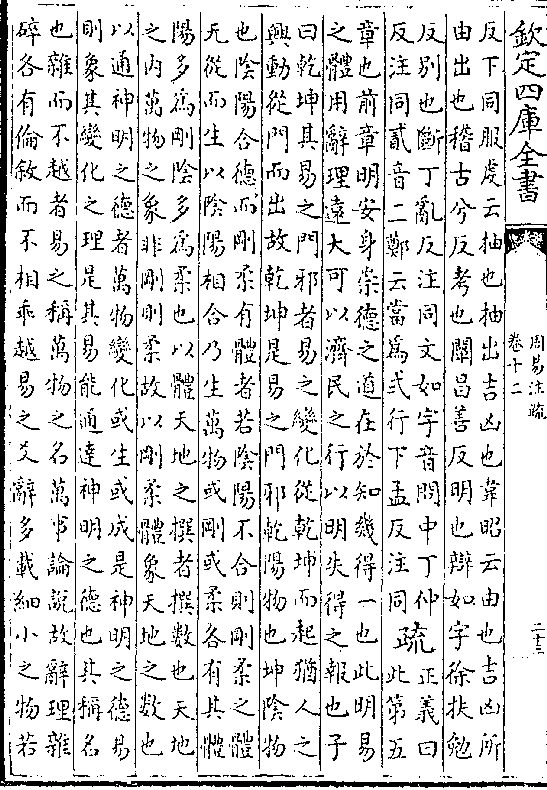 欽定四庫全書
周易注疏
卷十二
二十三
反下同服虔云抽也抽出吉凶也韋昭云由也吉凶所
由出也稽古兮反考也闡昌善反明也辯如字徐扶勉
反别也斷丁亂反注同文如字音問中丁仲
反注同貳音二鄭云當為弍行下孟反注同疏正義曰此第五
章也前章明安身崇德之道在於知幾得一也此明易
之體用辭理遠大可以濟民之行以明失得之報也子
曰乾坤其易之門邪者易之變化從乾坤而起猶人之
興動從門而出故乾坤是易之門邪乾陽物也坤陰物
也陰陽合德而剛柔有體者若陰陽不合則剛柔之體
无從而生以陰陽相合乃生萬物或剛或柔各有其體
陽多為剛陰多為柔也以體天地之撰者撰數也天地
之内萬物之象非剛則柔故以剛柔體象天地之數也
以通神明之德者萬物變化或生或成是神明之德易
則象其變化之理是其易能通達神明之德也其稱名
也雜而不越者易之稱萬物之名萬事論説故辭理雜
碎各有倫敘而不相乖越易之爻辭多載細小之物若